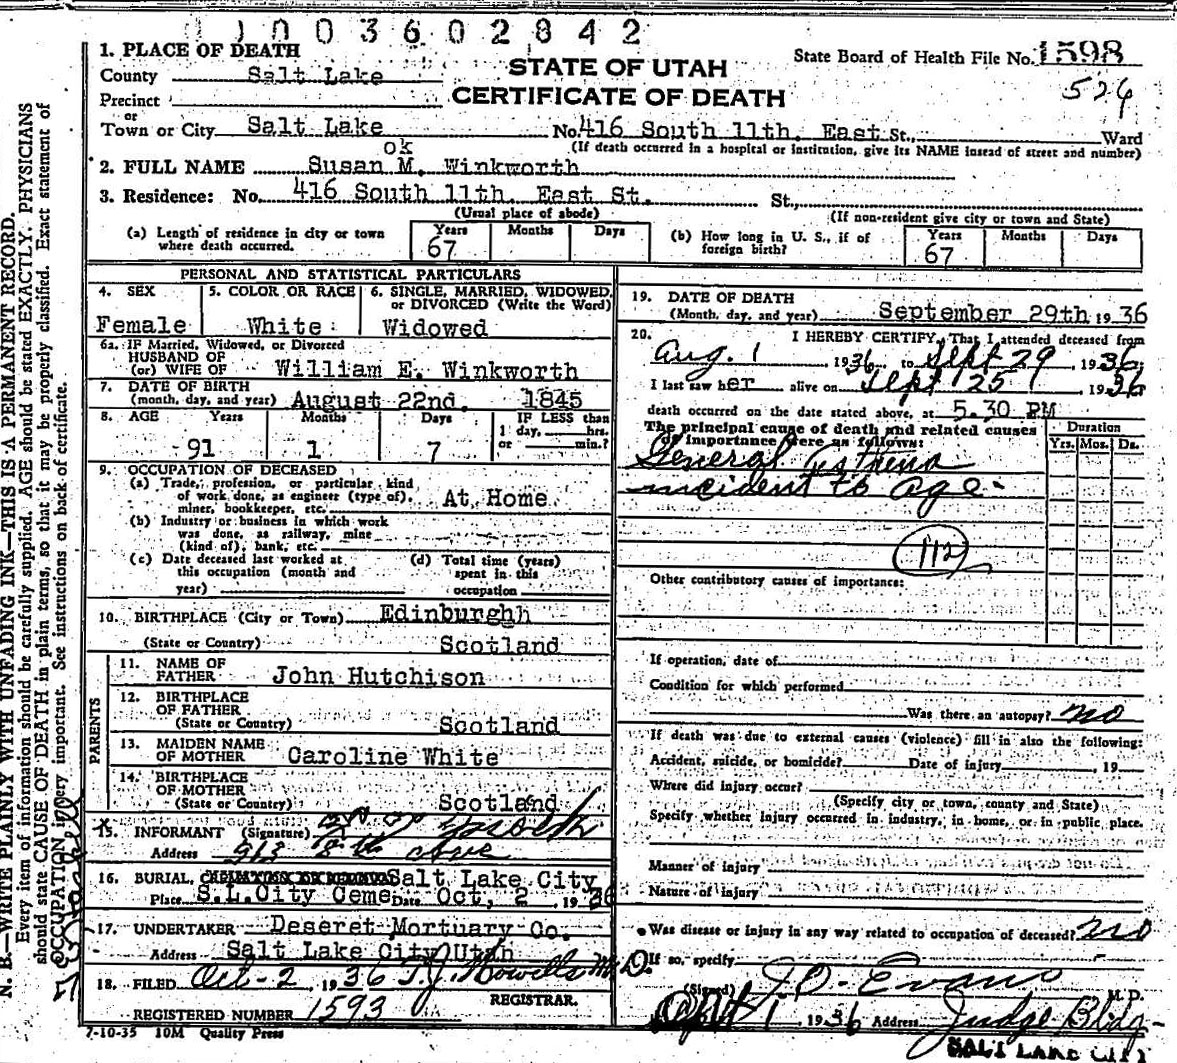 1003602842
1. PLACE OF DEATH
County Salt Lake
Precinct
or
Town or City Salt Lake
STATE OF UTAH
CERTIFICATE OF DEATH
State Board of Health File No. 1598
No. 416 South 11th. East St., Ward
(If death occurred in a hospital or institution, give its NAME instead of street and number)
ok
2. FULL NAME Susan M. Winkworth
3. Residence: No. 416 South 11th. East St. St.,
(Usual place of abode)
(If non-resident give city or town and State)
(a) Length of residence in city or town where death occurred. Years 67 Months Days
(b) How long in U. S., if of foreign birth? Years 67 Months Days
PERSONAL AND STATISTICAL PARTICULARS
4. SEX Female
5. COLOR OR RACE White
6. SINGLE, MARRIED, WIDOWED, or DIVORCED (Write the Word) Widowed
6a. IF Married, Widowed, or Divorced
HUSBAND OF
(or) WIFE OF William E. Winkworth
7. DATE OF BIRTH
(month, day, and year) August 22nd. 1845
8. AGE Years Months Days IF LESS than
91 1 7 1 day, hrs. or min.?
9. OCCUPATION OF DECEASED
(a) Trade, profession, or particular kind
of work done, as engineer (type of).
miner, bookkeeper, etc. At Home
(b) Industry or business in which work
was done, as railway, mine
(kind of), bank, etc.
(c) Date deceased last worked at
this occupation (month and
year)
(d) Total time (years)
spent in this
occupation
10. BIRTHPLACE (City or Town) Edinburghh
(State or Country) Scotland
PARENTS
11. NAME OF
FATHER John Hutchison
12. BIRTHPLACE
OF FATHER
(State or Country) Scotland
13. MAIDEN NAME
OF MOTHER Caroline White
14. BIRTHPLACE
OF MOTHER
(State or Country) Scotland
15. INFORMANT (Signature)
Address 913 8th Ave
16. BURIAL, Salt Lake City
Place S.L.City Ceme Date Oct, 2 1936
17. UNDERTAKER Deseret Mortuary Co.
Address Salt Lake City Utah
18. FILED Oct-2, 1936 T.J. Howells M.D.
REGISTRAR.
REGISTERED NUMBER 1593
7-10-35 10M Quality Press
19. DATE OF DEATH
(Month, day, and year) September 29th 1936
20. I HEREBY CERTIFY, That I attended deceased from
Aug. 1 1936 to Sept 29, 1936
I last saw her alive on Sept 25 1936
death occurred on the date stated above, at 5.30 PM
The principal cause of death and related causes
of importance were as follows:
Duration
Yrs. Mos. Ds.
General Asthenia
incident to age-
112
Other contributory causes of importance:
If operation, date of
Condition for which performed
Was there an autopsy? no
If death was due to external causes (violence) fill in also the following:
Accident, suicide, or homicide? Date of injury , 19
Where did injury occur?
(Specify city or town, county and State)
Specify whether injury occurred in industry, in home, or in public place.
Manner of injury
Nature of injury
Was disease or injury in any way related to occupation of deceased? no
If so, specify
(Signed) J.D. Evans M.D.
1, 1936 Address Judge Bldg-
SALT LAKE CITY
N. B.—WRITE PLAINLY WITH UNFADING INK—THIS IS A PERMANENT RECORD.
Every item of information should be carefully supplied. AGE should be stated EXACTLY. PHYSICIANS
should state CAUSE OF DEATH in plain terms, so that it may be properly classified. Exact statement of
OCCUPATION is very important. See instructions on back of certificate.